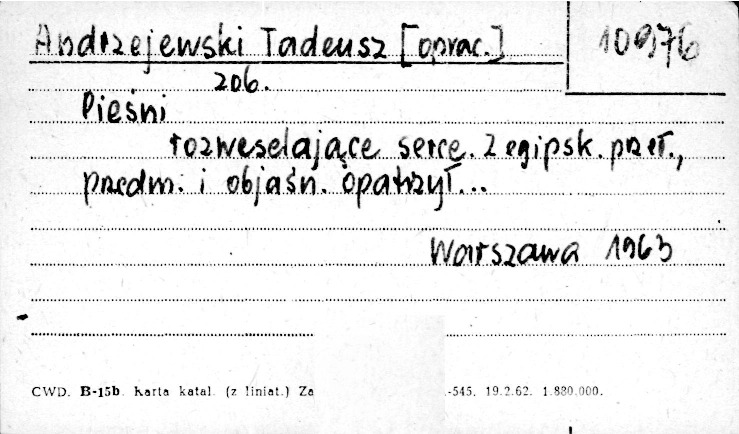 Andrzejewski Tadeusz [oprac.]
10976
zob.
Pieśni
rozweselające serce. Z egipsk. przeł.,
przedm. i objaśn. opatrzył...
Warszawa 1963
CWD. B-15b. Karta katal. (z liniat.) Za -545. 19.2.62. 1.880.000.